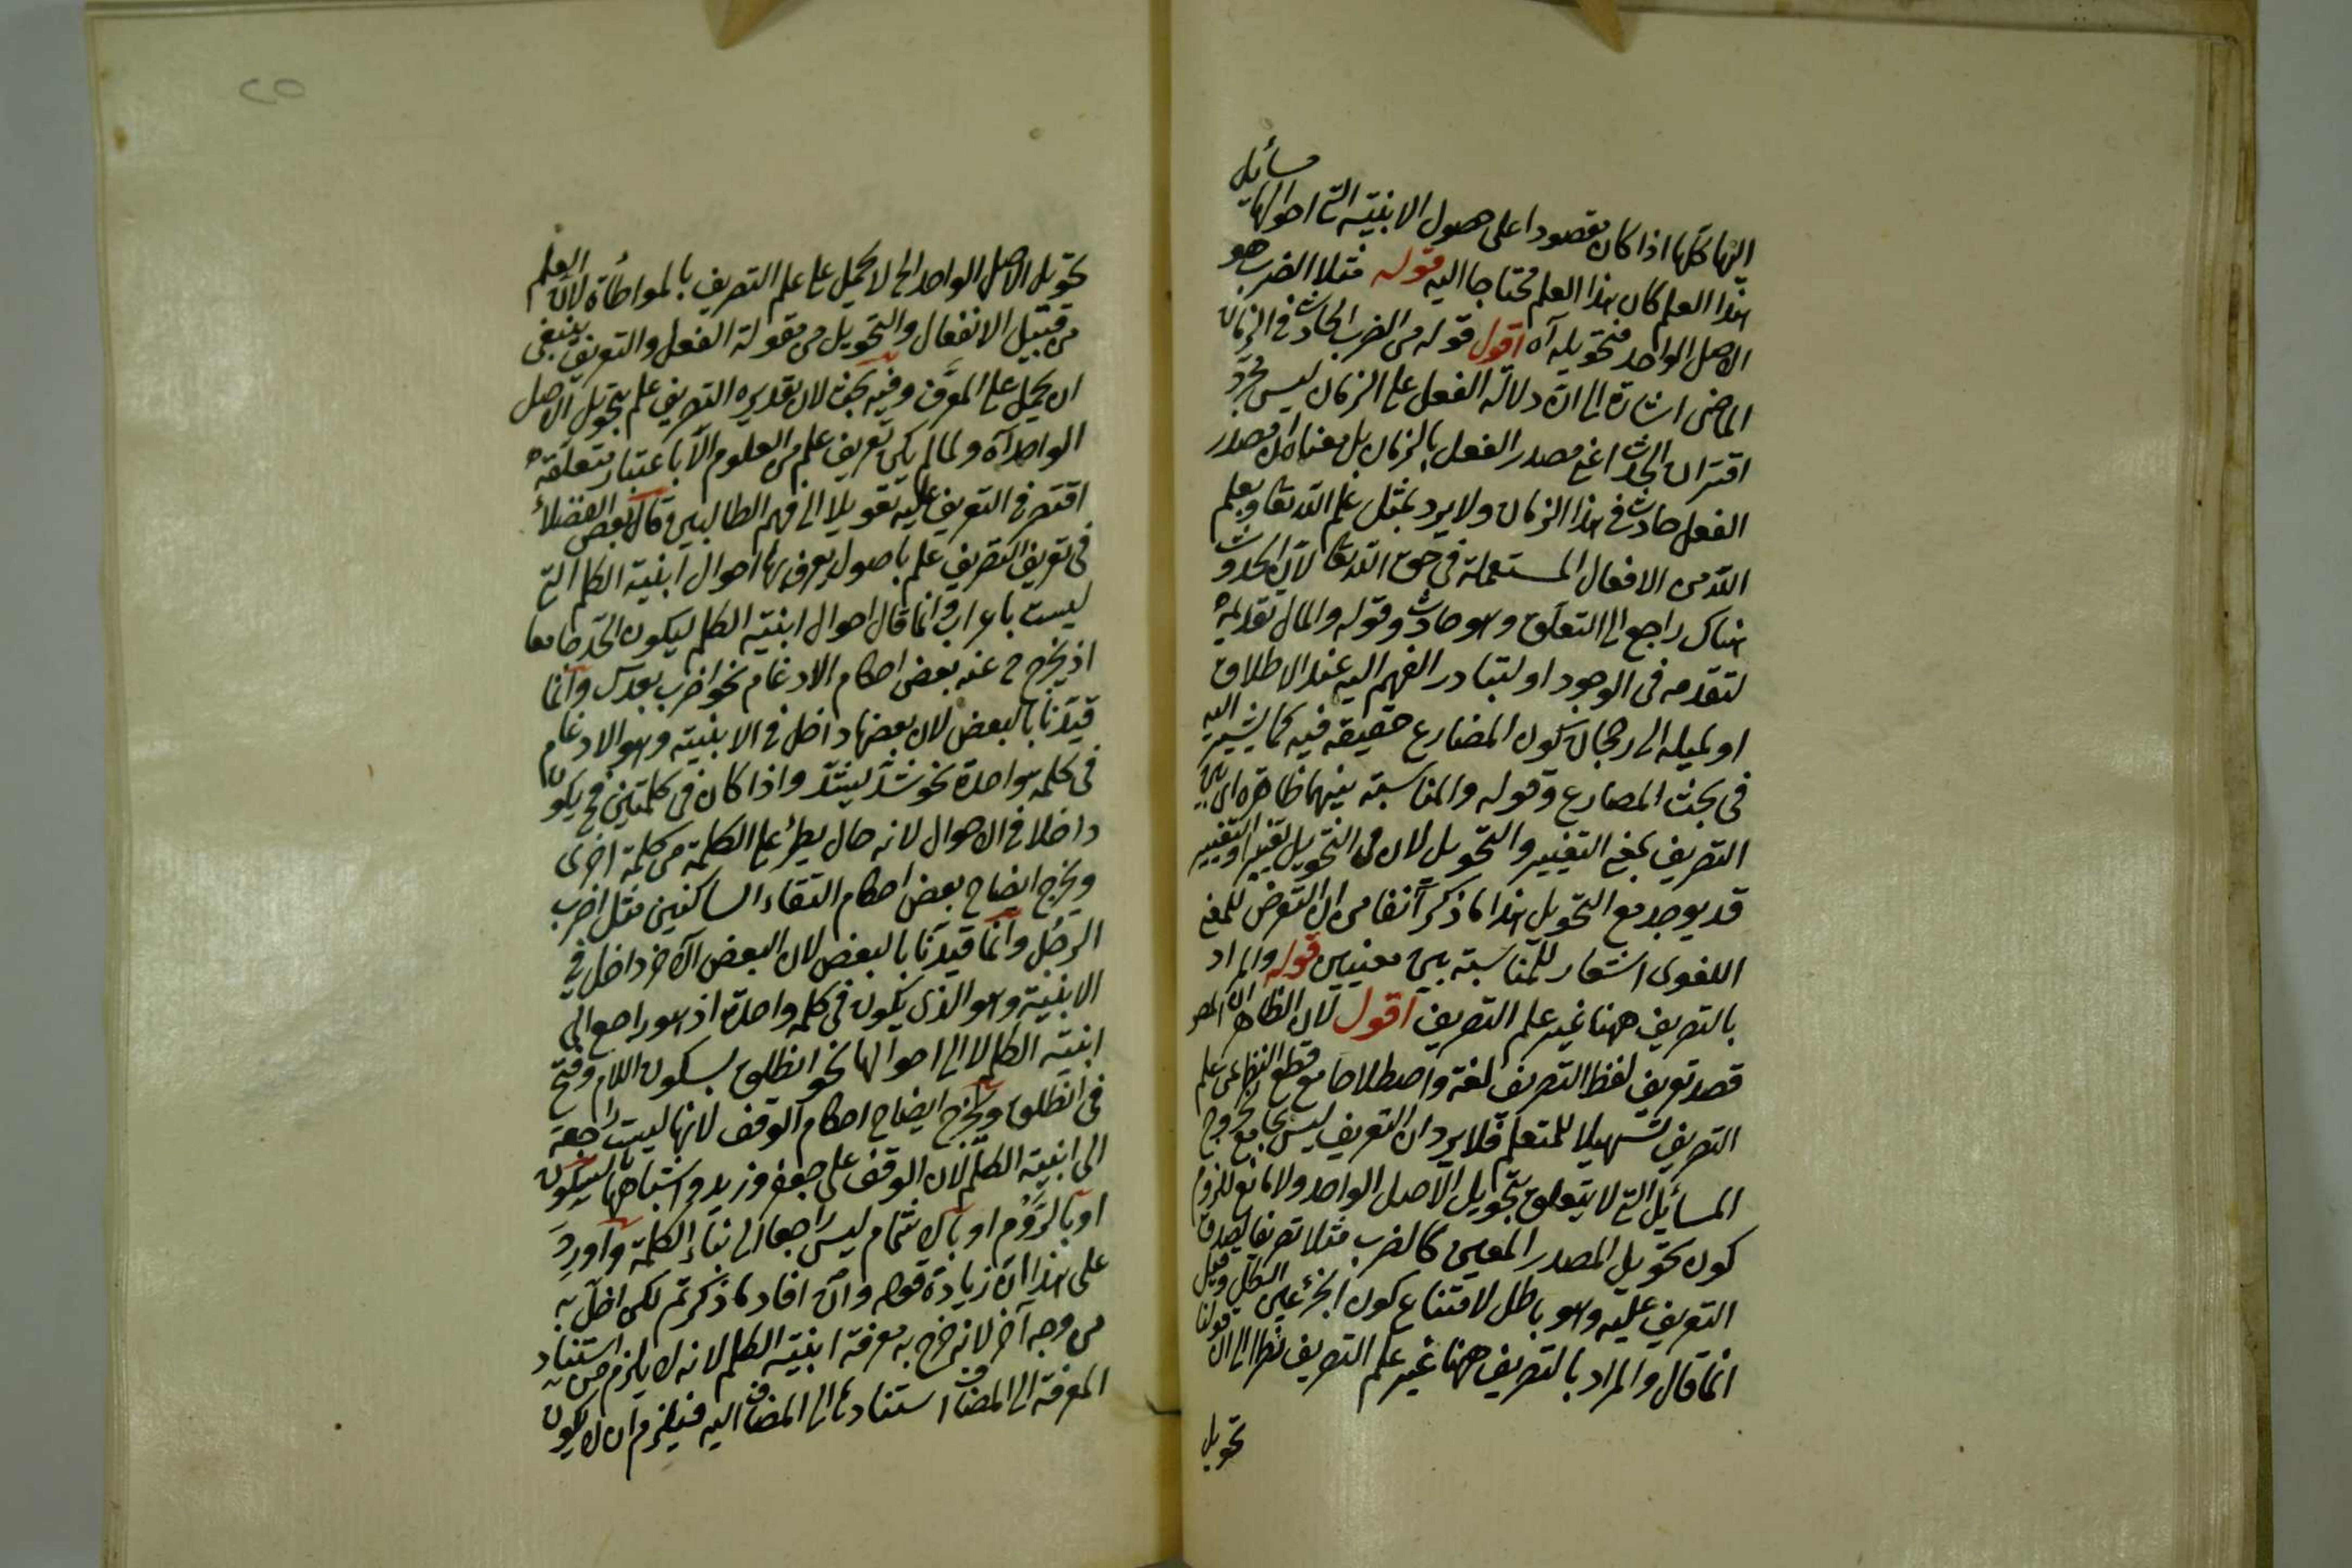 مسائل
اليها كلها اذا كان مقصودا على حصول الابنية التي احوالها
هذا العلم كان هذا العلم محتاجا اليه قوله مثلا الضرب هو
الاصل الواحد فتحويله آه اقول قوله من الضرب الحادث في الزمان
الماضى اشارة الى ان دلالة الفعل على الزمان ليس مجرد
اقتران الحدث اعنى مصدر الفعل بالزمان بل معناه ان مصدر
الفعل حادث في هذا الزمان ولا يرد بمثل علم الله تعا ويعلم
الله من الافعال المستعملة في حق الله تعا لان الحدوث
هناك راجع الى التعلق وهو حادث وقوله والمال تقديمه
لتقدمه في الوجود او لتبادر الفهم اليه عند الاطلاق
او لميله الى رجحان كون المضارع حقيقة فيه كما يشير اليه
في بحث المضارع وقوله والمناسبة بينهما ظاهرة اى بين
التصريف بمعنى التغيير والتحويل لان في التحويل تغييرا والتغيير
قد يوجد مع التحويل هذا لما ذكر آنفا من ان التعرض للمعنى
اللغوى اشعار للمناسبة بين معنيين قوله والمراد
بالتصريف ههنا غير علم التصريف اقول لان الظاهر ان المصـ
قصد تعريف لفظ التصريف لغة واصطلاحا مع قطع النظر عن علم
التصريف تسهيلا للمتعلم فلا يرد ان التعريف ليس بجامع لخروج
المسائل التي لا يتعلق بتحويل الاصل الواحد ولا مانع للزوم
كون تحويل المصدر المعين كالضرب مثلا تصريفا لصدق
التعريف عليه وهو باطل لامتناع كون الجزء عين الكل وقيل
انما قال والمراد بالتصريف ههنا غير علم التصريف نظرا الى ان قولنا
تحويل
٢٥
تحويل الاصل الواحد الى لا يحمل على علم التصريف بالمواطأة لان العلم
من قبيل الانفعال والتحويل من مقولة الفعل والتعريف ينبغى
ان يحمل على المعرف وفيه بحث لان تقديره التصريف علم بتحويل الاصل
الواحد آه ولما لم يكن تعريف علم من العلوم الا باعتبار متعلقه
اقتصر في التعريف عليه تعويلا الى فهم الطالبين قال بعض الفضلاء
في تعريف التصريف علم باصول يعرف بها احوال ابنية الكلم التي
ليست باعراب وانما قال احوال ابنية الكلم ليكون الحد جامعا
اذ يخرج ح عنه بعض احكام الادغام نحو اضرب بعدك وانما
قيدنا بالبعض لان بعضها داخل في الابنية وهو الادغام
في كلمة واحدة نحو شد يشد واذا كان في كلمتين فح يكون
داخلا في الاحوال لانه حال يطرء على الكلمة من كلمة اخرى
ويخرج ايضا ح بعض احكام التقاء الساكنين مثل اضرب
الرجل وانما قيدنا بالبعض لان البعض الآخر داخل في
الابنية وهو الذى يكون في كلمة واحدة اذ هو راجع الى
ابنية الكلم لا الى احوالها نحو انطلق بسكون اللام وفتح
في انطلق ويخرج ايضا ح احكام الوقف لانها ليست راجعة
الى ابنية الكلم لان الوقف على جعفر وزيد واشباهها بالسكون
او بالروم او بالاشمام ليس راجعا الى بناء الكلمة واورد
على هذا ان زيادة قوله وان افاد ما ذكرتم لكن اخل به
من وجه آخر لانه خرج به معرفة ابنية الكلم لانه لا يلزم من استناد
المعرفة الى المضاف استنادها الى المضاف اليه فيلزم ان لا يكون